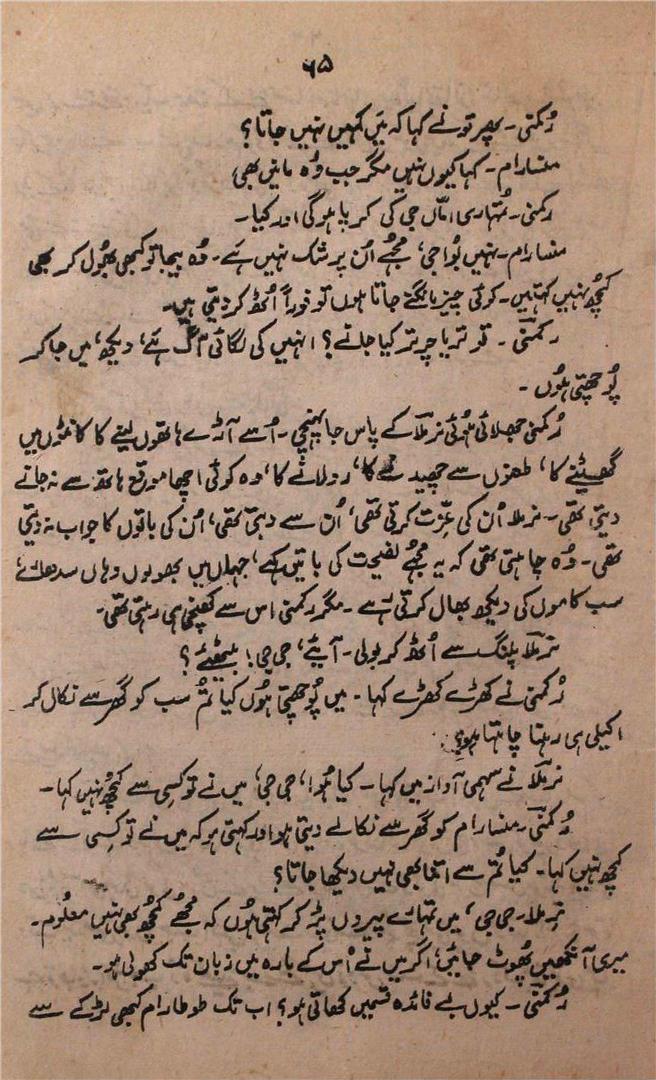 ۶۵
رُکمنی۔ پھر تو نے کہا کہ میَں کہیں نہیں جاتا؟
منسارام۔ کہا کیوں نہیں مگر جب وُہ مانیں بھی
رکمنی۔ تُمہاری امّاں جی کی کرپا ہو گی اور کیا۔
منسارام۔ نہیں بُوا جی، مجُھے اُن پر شک نہیں ہَے۔ وُہ بیچاتو کبھی بھُول کر بھی
کچُھ نہیں کہتیں۔ کوئی چیز مانگنے جاتا ہوں تو فوراً اُٹھ کر دیتی ہیں۔
رکمنیؔ۔ تو تریا چرتر کیا جانے؟ انہیں کی لگائی آگ ہَے، دیکھ، میں جا کر
پُوچھتی ہوُں۔
رُکمنی جھلائی ہوُئی نرملاؔ کے پاس جا پہنچی۔ اُسے آڑے ہاتھوں لینے کا کانٹوں میں
گھسیٹنے کا، طعنوں سے چھیدنے کا، رولانے کا، وہ کوئی اچھا موقع ہاتھ سے نہ جانے
دیتی تھی۔ نرملا اُن کی عزّت کرتی تھی، اُن سے دبتی تھی، اُن کی باتوں کا جواب نہ دیتی
تھی۔ وُہ چاہتی تھی کہ یہ مجُھے نصیحت کی باتیں کہے، جہاں میں بھولوں وہاں سدھارے،
سب کاموں کی دیکھ بھال کرتی رہے۔ مگر رکمنی اس سے کھنچی ہی رہتی تھی۔
نرملاؔ پلنگ سے اُٹھ کر بولی۔ آیئے، جی جی! بیٹھئے؟
رُکمنی نے کھڑے کھڑے کہا۔ میں پُوچھتی ہوُں کیا تُم سب کو گھر سے نکال کر
اکیلی ہی رہنا چاہتا ہو؟
نرملاؔ نے سہمی آواز میں کہا۔ کیا ہوُا، جی جی، میں نے تو کسِی سے کچُھ نہیں کہا۔
رُکمنیؔ۔ منسارام کو گھر سے نکالے دیتی ہو اور کہتی ہو کہ میں نے تو کسِی سے
کچُھ نہیں کہا۔ کیا تُم سے اتنا بھی نہیں دیکھا جاتا؟
نرملا۔ جی جی، میں تمہارے پیروں پڑ کر کہتی ہوُں کہ مجُھے کچُھ بھی نہیں معلُوم۔
میری آنکھیں پھُوٹ جائیں، اگر میں نے اُس کے بارہ میں زبان تک کھولی ہو۔
رُکمنیؔ۔ کیوں بے فائدہ قسمیں کھاتی ہو؟ اب تک طوطارام کبھی لڑکے سے